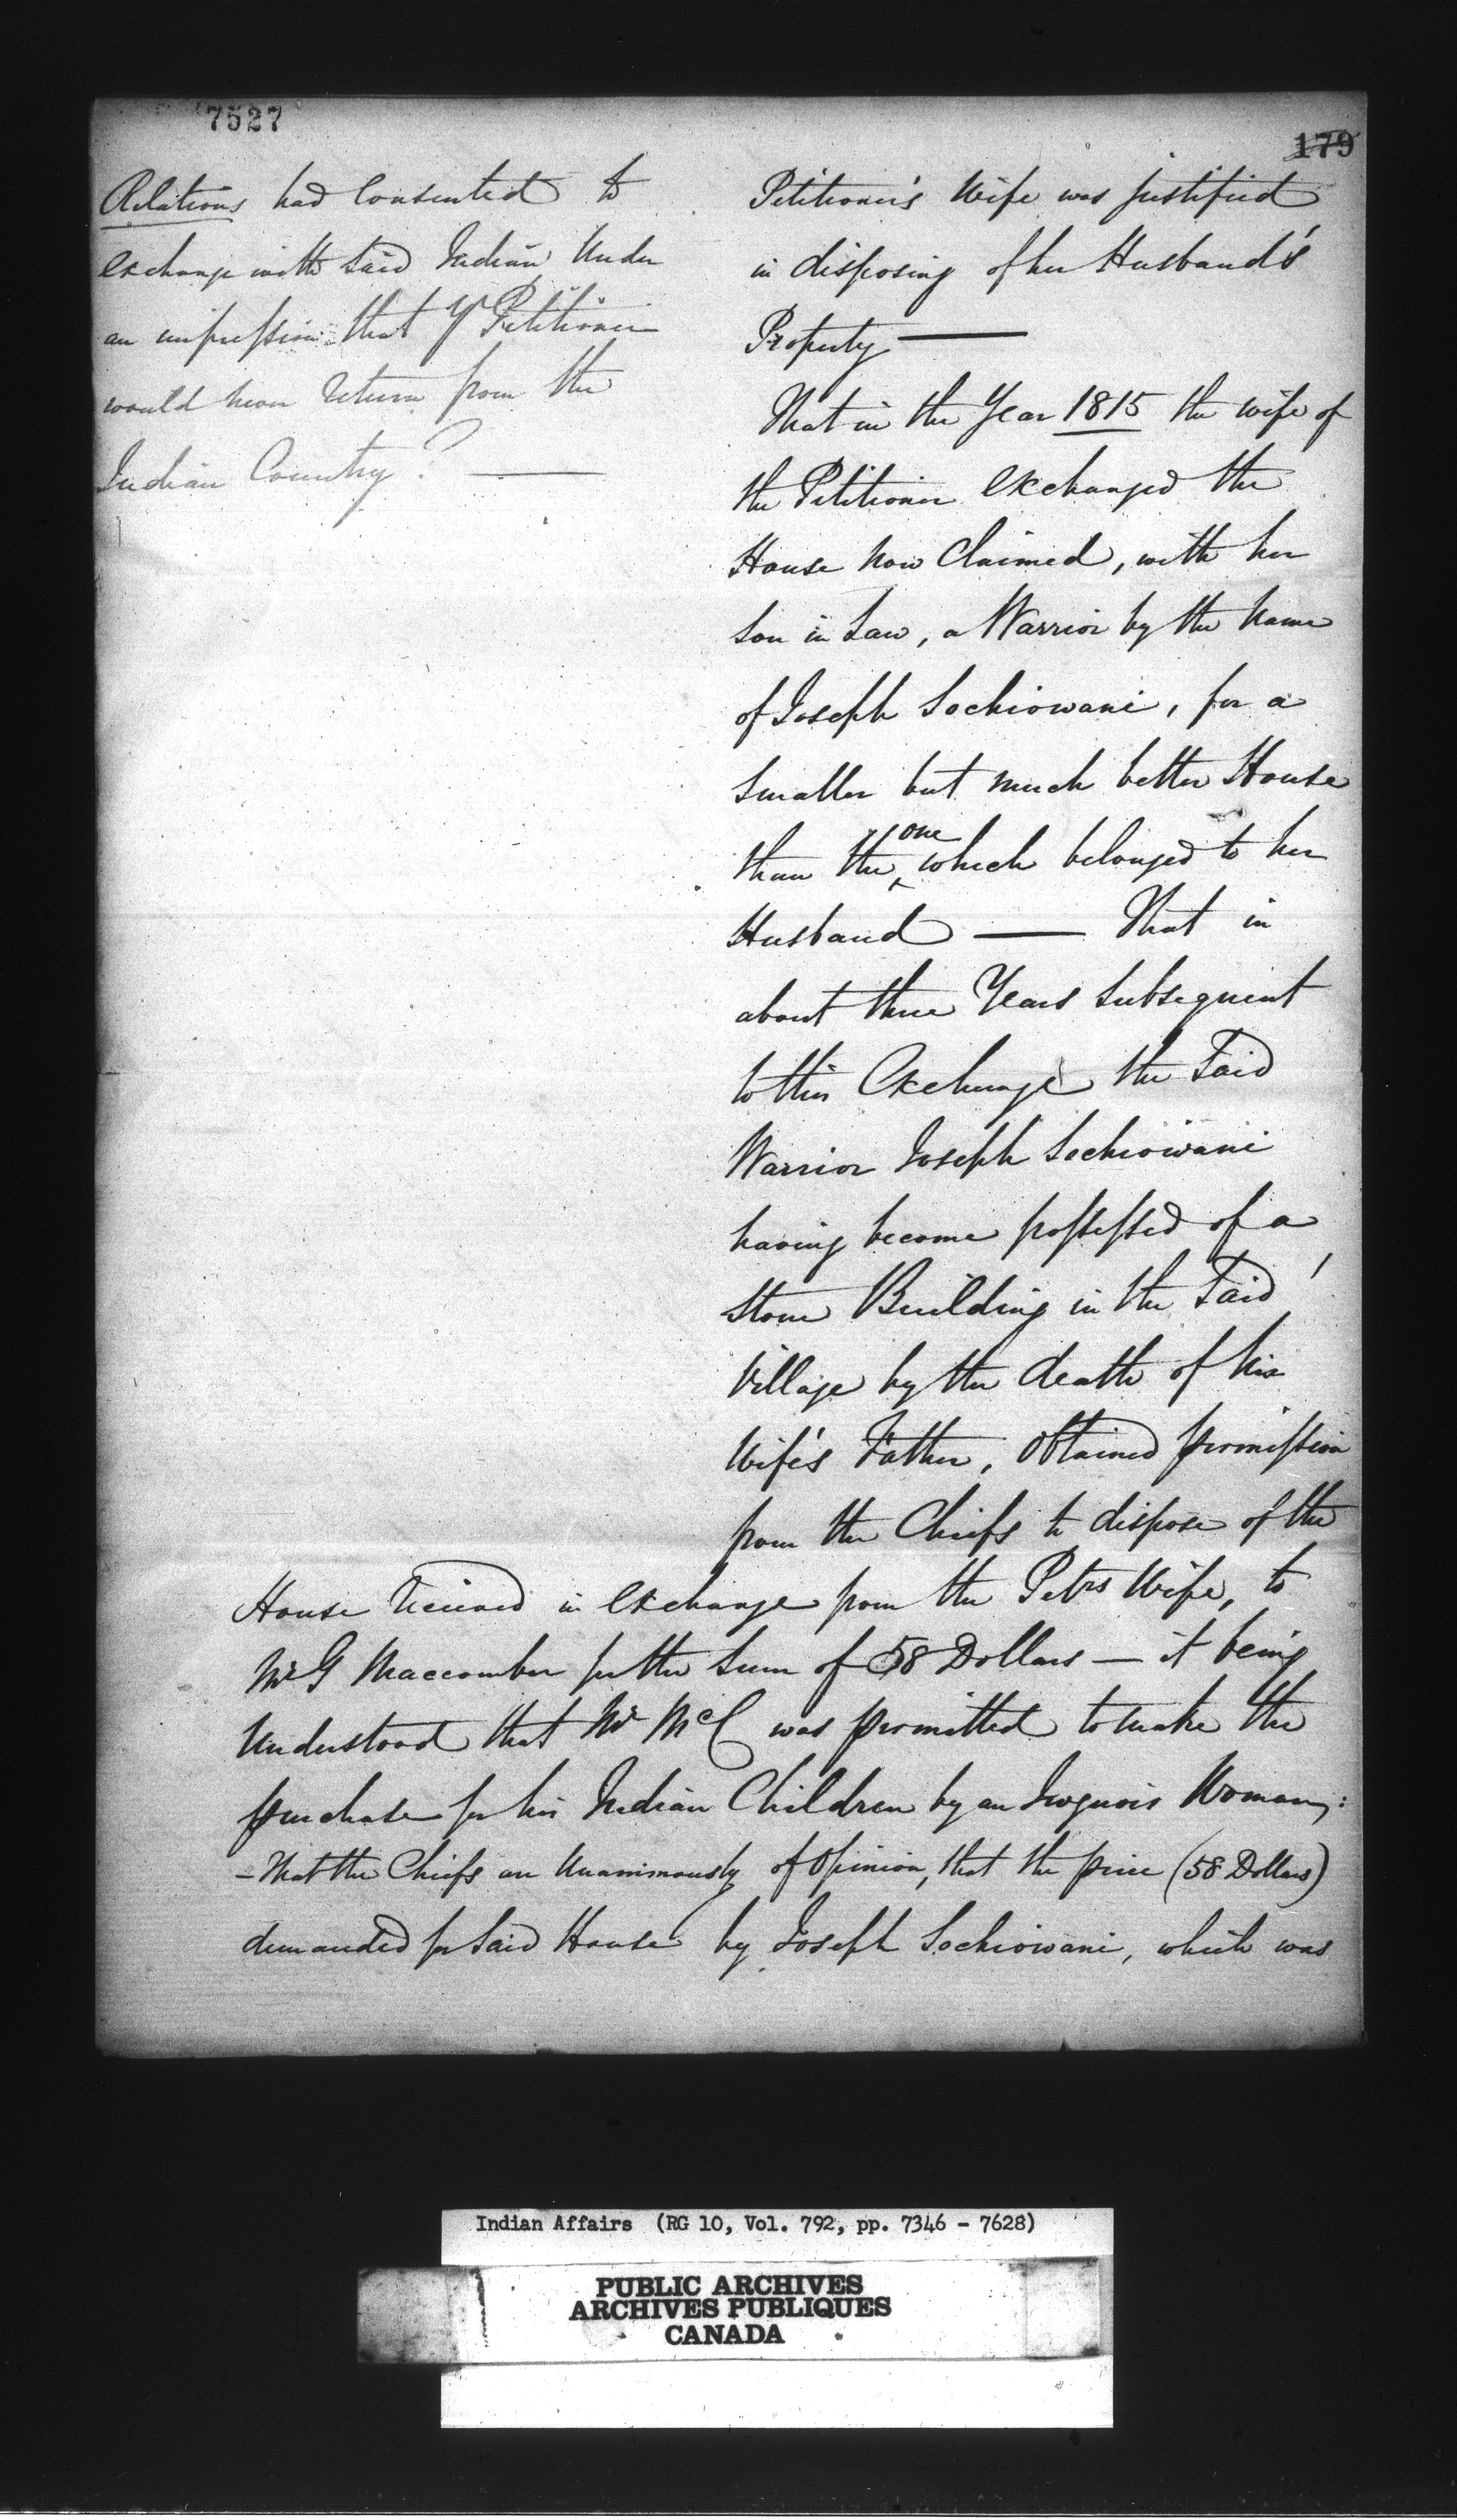 7527
179
Relations had Consented to
exchange with said Indian Under
an impression that Yr Petitioner
would never return from the
Indian Country? —
Petitioner's Wife was justified
in disposing of her Husband's
Property —
That in the Year 1815 the wife of
the Petitioner exchanged the
House now Claimed, with her
Son in Law, a Warrior by the name
of Joseph Sochiowani, for a
smaller but much better House
than the one which belonged to her
Husband — That in
about three Years subsequent
to this Exchange the Said
Warrior Joseph Sochiowani
having become possessed of a
Stone Building in the Said
Village by the death of his
Wife's Father, Obtained permission
from the Chiefs to dispose of the
House received in exchange from the Petrs Wife, to
Mr G Maccomber for the Sum of 58 Dollars — it being
Understood that Mr McC was permitted to make the
purchase for his Indian Children by an Iroquois Woman;
- That the Chiefs are Unanimously of Opinion, that the price (58 Dollars)
demanded for Said House by Joseph Sochiowani, which was
Indian Affairs (RG 10, Vol. 792, pp. 7346 - 7628)
PUBLIC ARCHIVES
ARCHIVES PUBLIQUES
CANADA